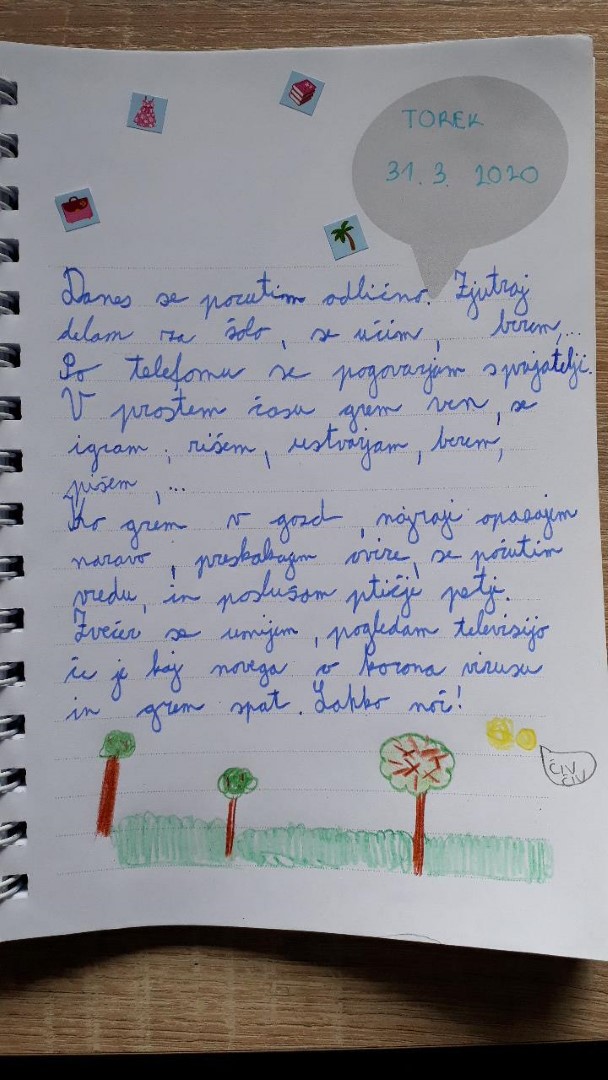 TOREK
31. 3. 2020
Danes se pocutim odlično. Zjutraj
delam za šolo, se učim, berem,...
Po telefomu se pogovarjam s prijatelji.
V prostem času grem ven, se
igram, rišem, ustvarjam, berem,
pišem,...
Ko grem v gozd, najraji opazajem
naravo, preskakujem ovire, se počutim
vredu, in poslušam ptičje petje.
Zvečer se umijem, pogledam televisijo
če je kaj novega o korona virusu
in grem spat. Lahko noč!
ČIV
ČIV